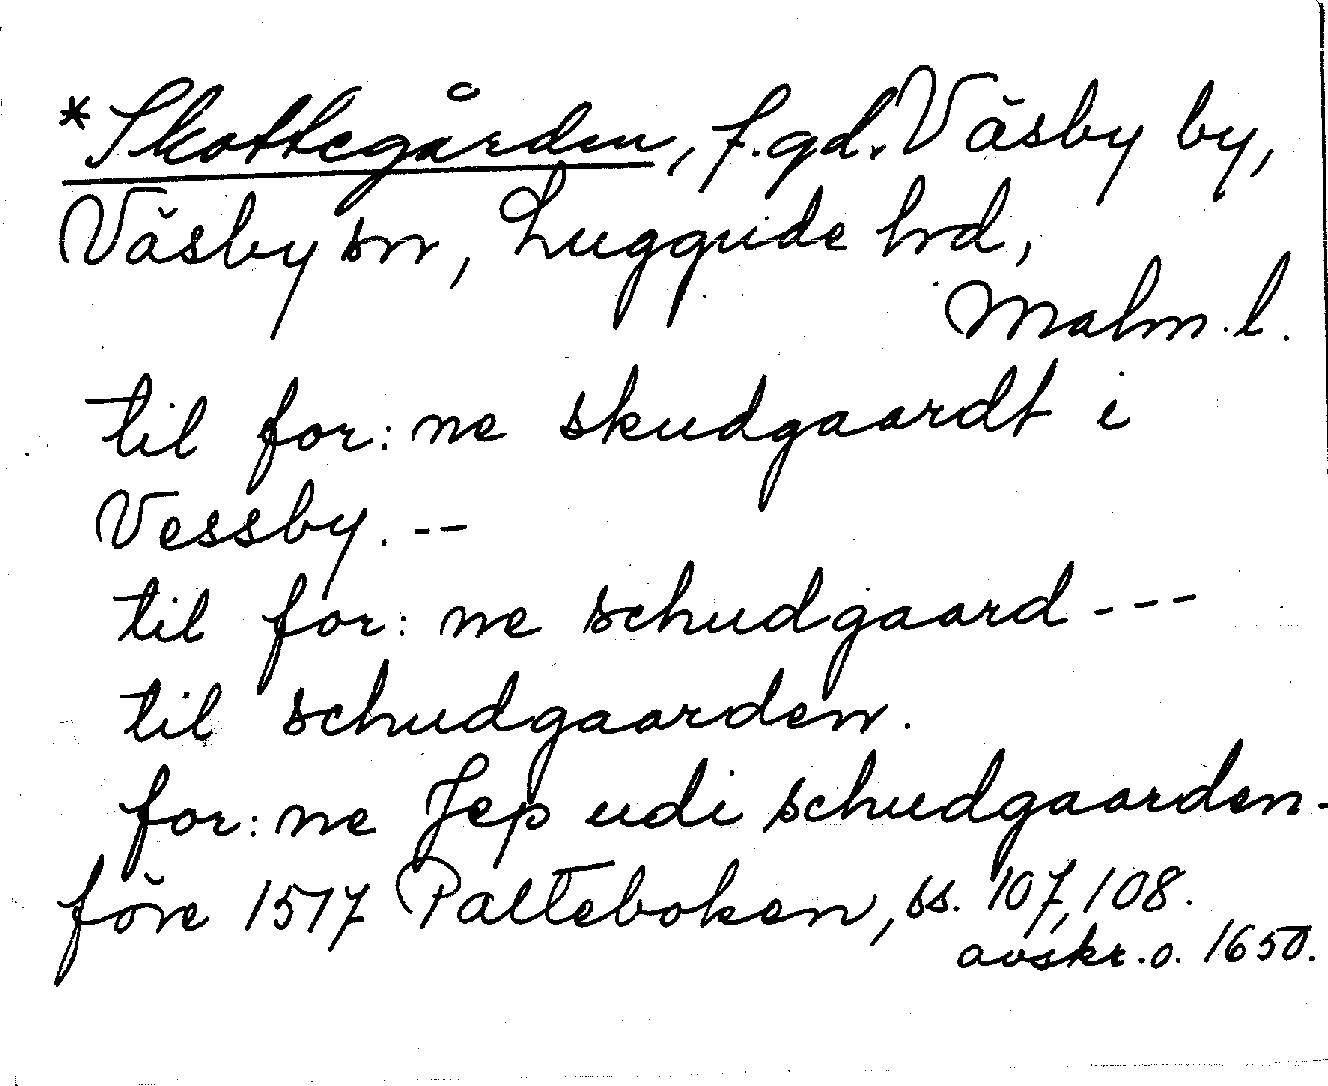 *Skottegården, f.gd. Väsby by,
Väsby sn, Luggude hd,
Malm.l.
til for: ne skudgaardt i
Vessby. --
til for: ne schudgaard ---
til schudgaarden.
for: ne Jep udi schudgaarden.
före 1517 Palteboken, ss. 107, 108.
avskr. o. 1650.